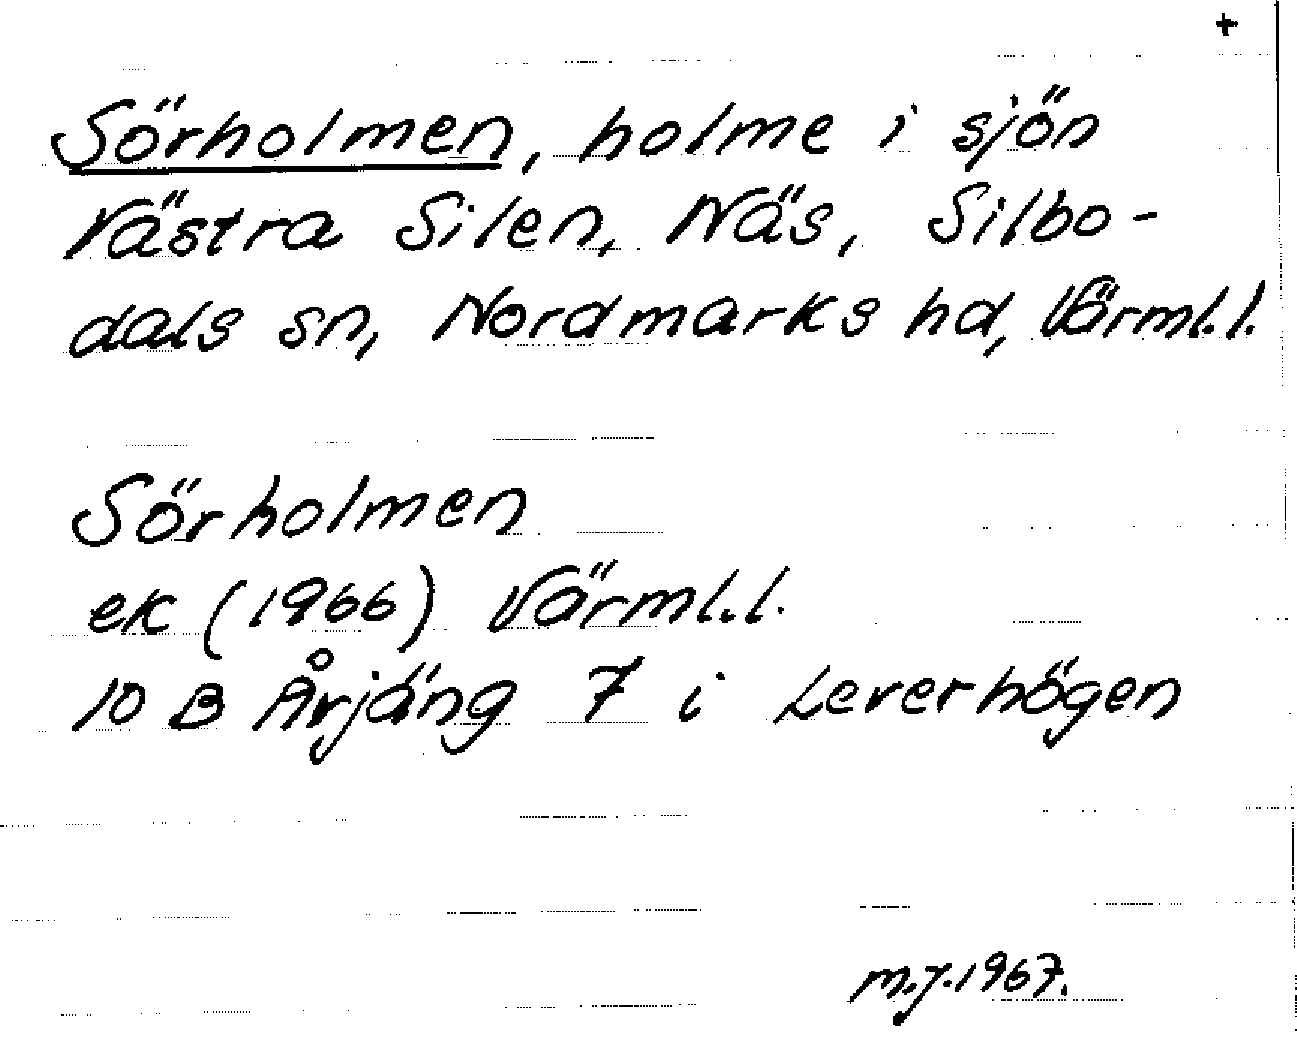 +
Sörholmen, holme i sjön
Västra Silen, Näs, Silbo-
dals sn, Nordmarks hd, Värml.l.
Sörholmen
ek (1966) Värml.l.
10 B Årjäng 7 i Leverhögen
m.j.1967.